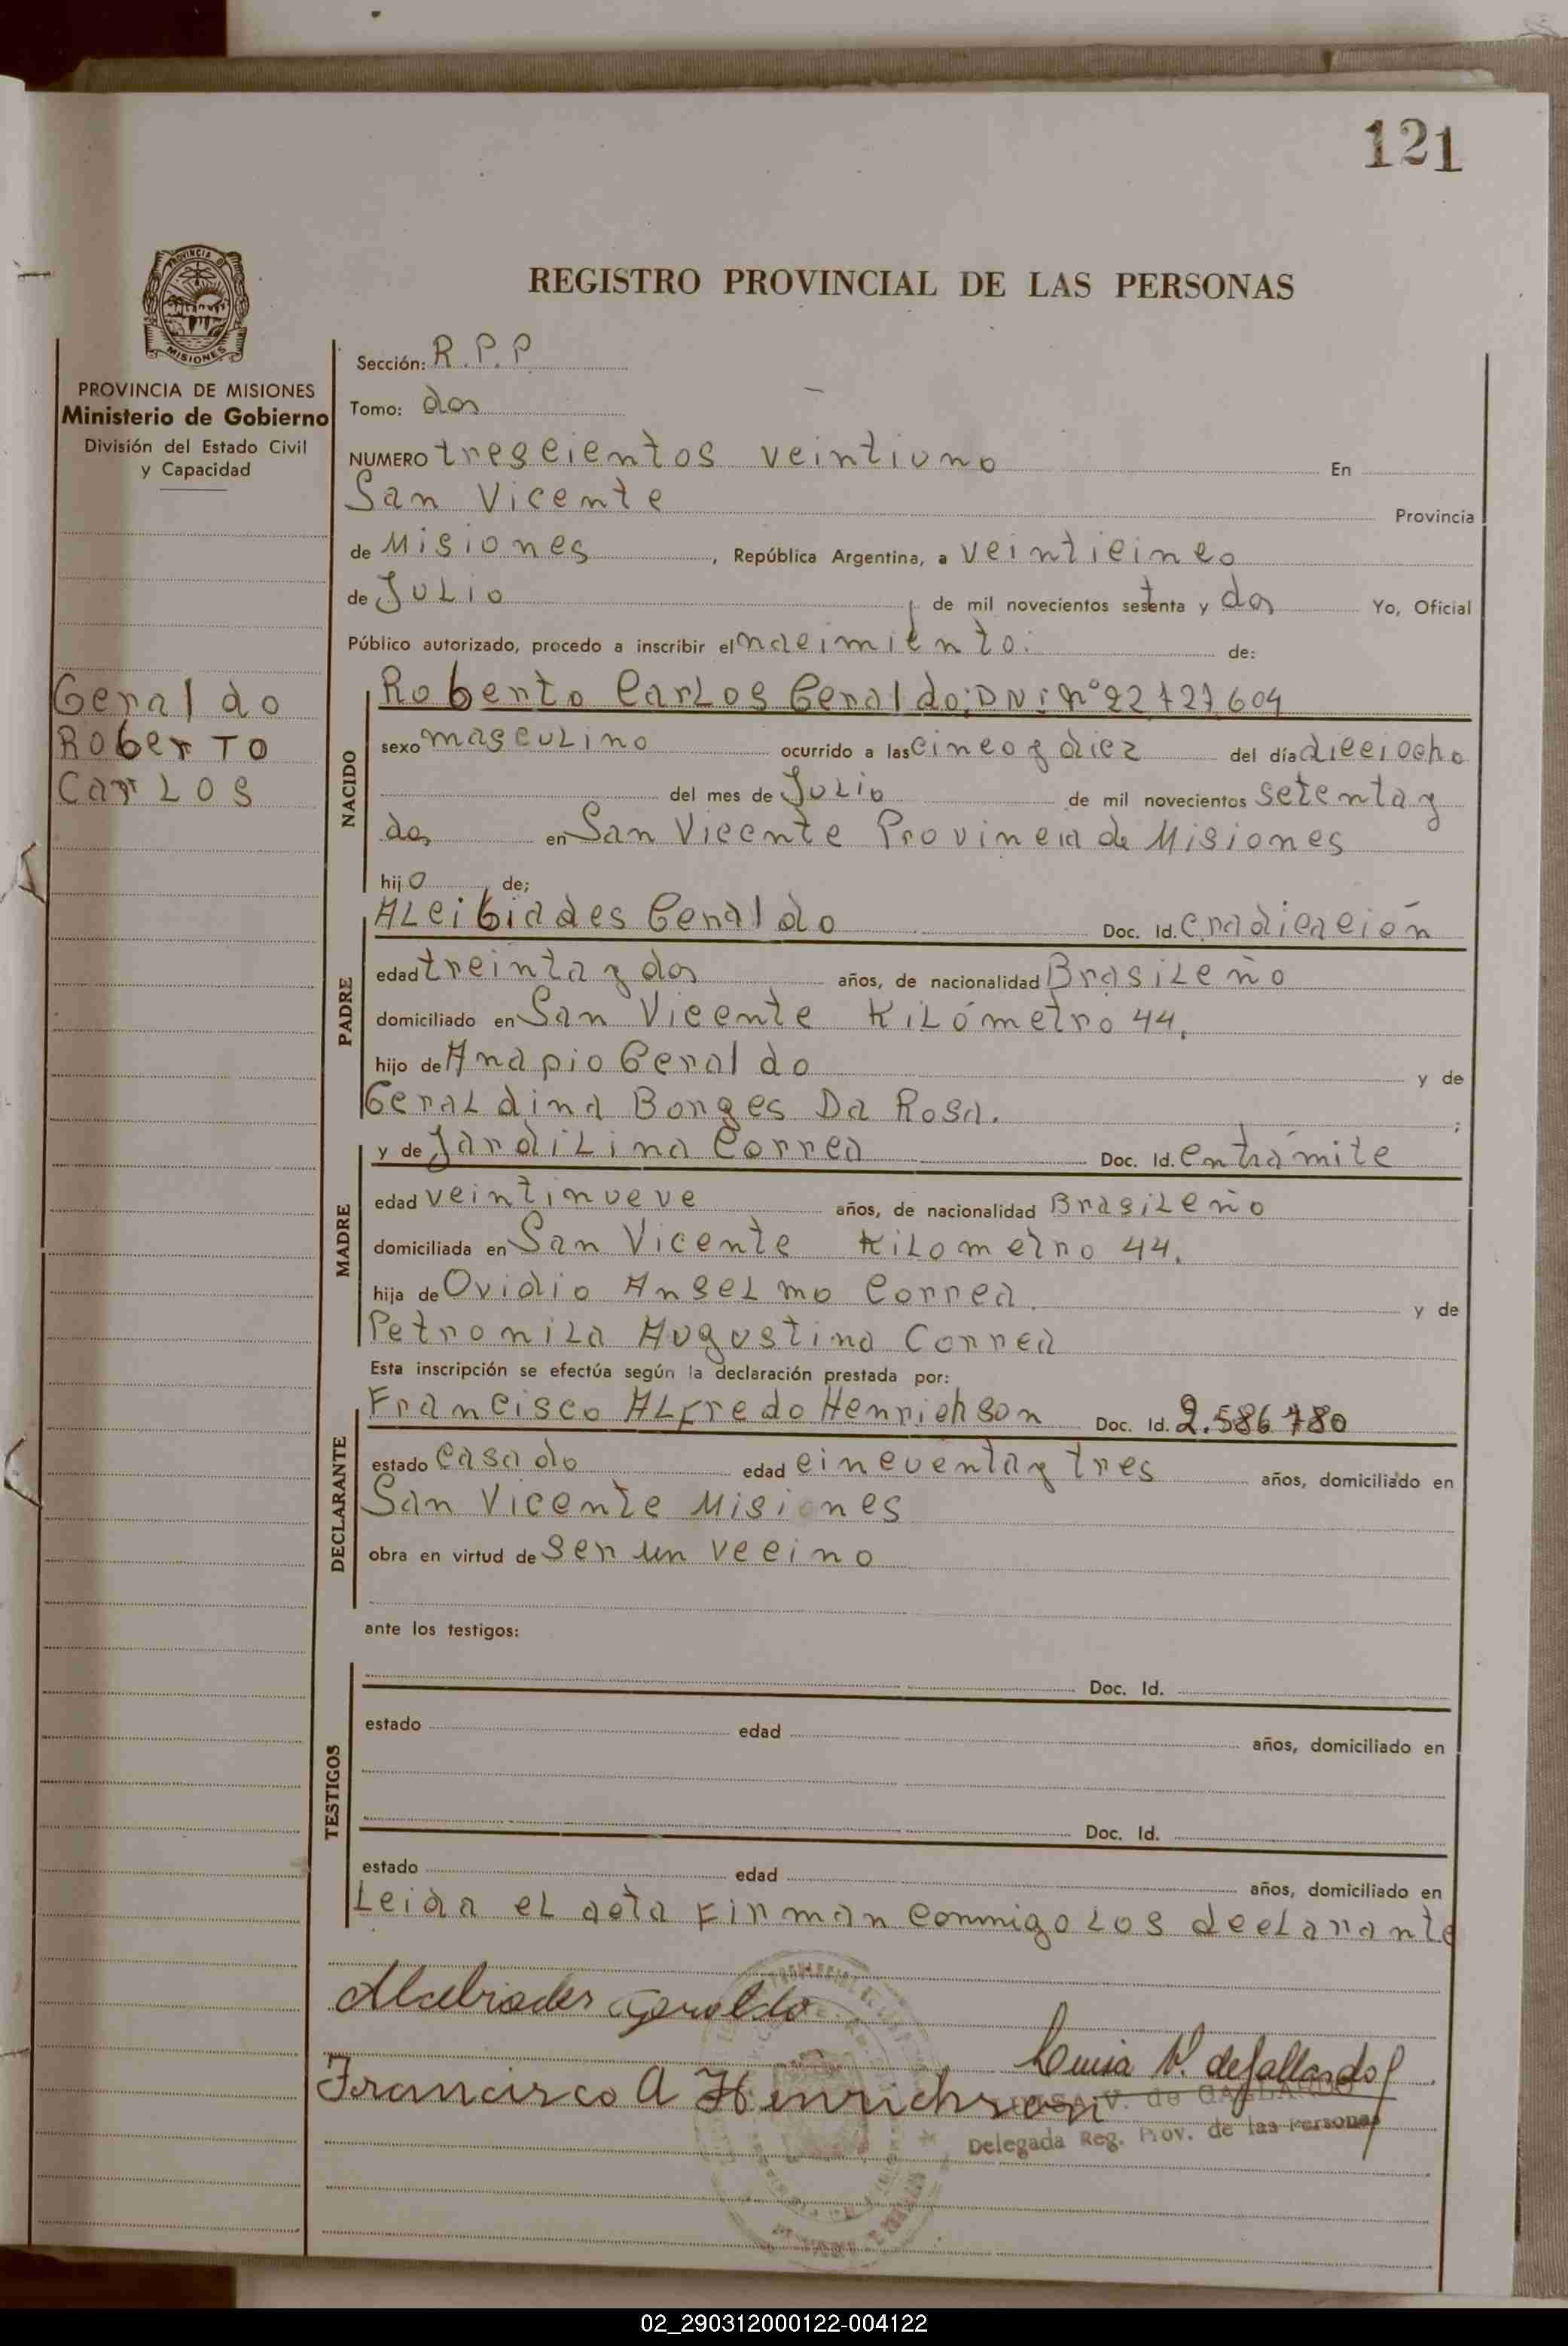 121
REGISTRO PROVINCIAL DE LAS PERSONAS
PROVINCIA DE MISIONES
Ministerio de Gobierno
División del Estado Civil
y Capacidad
Geraldo
Roberto
Carlos
Sección: R.P.P
Tomo: dos
NUMERO trescientos veintiuno En
San Vicente Provincia
de Misiones, República Argentina, a veinticinco
de Julio de mil novecientos setenta y dos Yo, Oficial
Público autorizado, procedo a inscribir el nacimiento: de:
Roberto Carlos Geraldo; DNI: Nº 22727604
NACIDO
sexo masculino ocurrido a las cinco y diez del día dieciocho
del mes de Julio de mil novecientos setenta y
dos en San Vicente Provincia de Misiones
hijo de;
Alcibiades Geraldo Doc. Id. c radicación
PADRE
edad treinta y dos años, de nacionalidad Brasileño
domiciliado en San Vicente Kilómetro 44.
hijo de Anapio Geraldo y de
Geraldina Borges Da Rosa. ;
y de Jardilina Correa Doc. Id. en trámite
MADRE
edad veintinueve años, de nacionalidad Brasileño
domiciliada en San Vicente Kilometro 44.
hija de Ovidio Anselmo Correa. y de
Petronila Augustina Correa
Esta inscripción se efectúa según la declaración prestada por:
Francisco Alfredo Henrichson Doc. Id. 2.586 780
DECLARANTE
estado casado edad cincuenta y tres años, domiciliado en
San Vicente Misiones
obra en virtud de ser un vecino
ante los testigos:
Doc. Id.
TESTIGOS
estado edad años, domiciliado en
Doc. Id.
estado edad años, domiciliado en
Leida el acta firman conmigo los declarante
Alcebiades Geraldo
Francisco A Henrichson
V. de GALLARDO
Delegada Reg. Prov. de las Personas
02_290312000122-004122